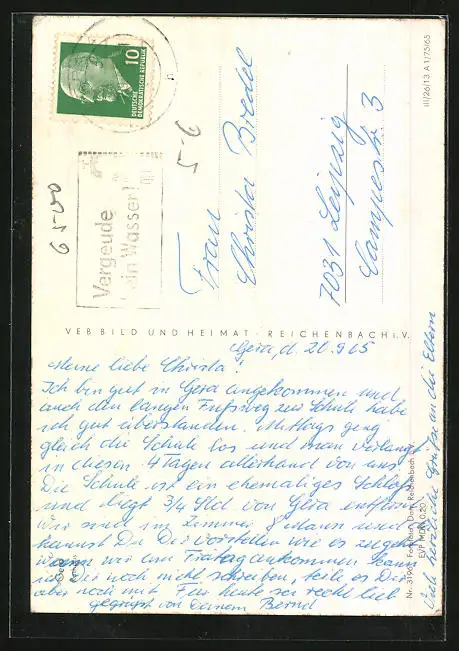 10
DEUTSCHE
DEMOKRATISCHE REPUBLIK
Vergeude
kein Wasser!
6500
56
Frau
Christa Bredel
7031 Leipzig
Campestr. 3
III/26/13 A 1/75/65
VEB BILD UND HEIMAT · REICHENBACH i. V.
Gera, d. 20.9.65
Meine liebe Christa!
Ich bin gut in Gera angekommen und
auch den langen Fußweg zur Schule habe
ich gut überstanden. Mittags ging
gleich die Schule los und man verlangt
in diesen 4 Tagen allerhand von uns.
Die Schule ist ein ehemaliges Schloß
und liegt 3/4 Std von Gera entfernt.
Wir sind im Zimmer 8 Mann und
kannst Du Dir vorstellen wie es zugeht.
Wann wir am Freitag ankommen kann
ich Dir noch nicht schreiben, teile es Dir
aber noch mit. Für heute sei recht lieb
gegrüßt von Deinem Bernd
Viele herzliche Grüße an die Eltern
Reichenbach
EVP MDN 0.20